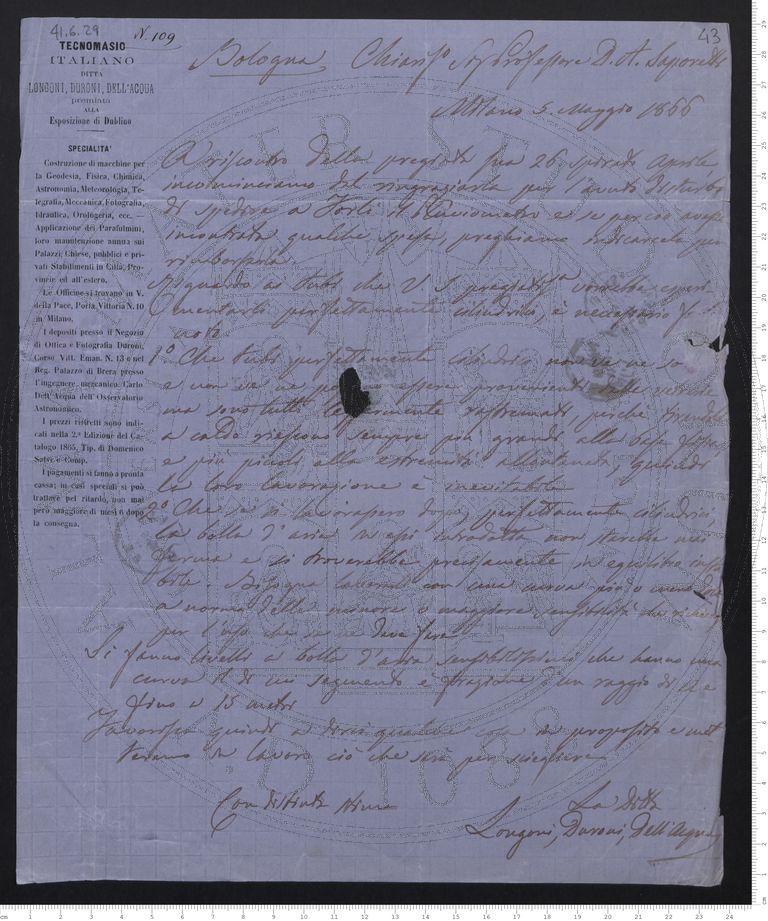 41.6.29
N. 109
43
TECNOMASIO
ITALIANO
DITTA
LONGONI, DURONI, DELL'ACQUA
premiata
ALLA
Esposizione di Dublino
SPECIALITA'
Costruzione di macchine per
la Geodesia, Fisica, Chimica,
Astronomia, Meteorologia, Te-
legrafia, Meccanica, Fotografia,
Idraulica, Orologeria, ecc. —
Applicazione dei Parafulmini,
loro manutenzione annua sui
Palazzi, Chiese, pubblici e pri-
vati Stabilimenti in Città, Pro-
vincie ed all'estero.
Le Officine si trovano in V.
della Pace, Porta Vittoria N. 10
in Milano.
I depositi presso il Negozio
di Ottica e Fotografia Duroni,
Corso Vitt. Eman. N. 13 e nel
Reg. Palazzo di Brera presso
l'ingegnere meccanico Carlo
Dell'Acqua dell'Osservatorio
Astronomico.
I prezzi ristretti sono indi-
cati nella 2.ª Edizione del Ca-
talogo 1865, Tip. di Domenico
Salvi e Comp.
I pagamenti si fanno a pronta
cassa; in casi speciali si può
trattare pel ritardo, non mai
però maggiore di mesi 6 dopo
la consegna.
Bologna Chiarss.o Sig. Professore D. A. Saporetti
Milano 5. Maggio 1866
A riscontro della pregiata sua 26 spirato Aprile,
incomincieremo del ringraziarla per l'avuto disturbo
di spedire a Forlì il Pluviometro e se perciò avesse
incontrata qualche spesa, preghiamo indicarcela per
rimborsarla.
Riguardo ai tubi che V. S. pregiatiss.a vorrebbe speri-
mentarli perfettamente cilindrici, è necessario
noto
1.o Che tubi perfettamente cilindrici non ve ne so
e non se ne essere provenienti dalle vetrerie
ma sono tutti leggermente rastremati, perchè
a caldo riescono sempre più grandi alla base
e più piccoli alla estremità allontanata, quindi
la loro lavorazione è inevitabile
2.o Che se si lavorassero dopo, perfettamente cilindrici,
la bolla d'aria in essi introdotta non starebbe mai
ferma e si troverebbe precisamente in equilibrio insta
bile. Bisogna lavorarli con una curva più o meno
a norma della minore o maggiore sensibilità che
per l'uso che se ne deve fare
Si fanno livelli a bolla d'aria sensibilissimi che hanno una
curva di un segmento e frazione d'un raggio di
fino a 15 metri
Favorisca quindi a dirci qualche cosa in proposito e met
teremo in lavoro ciò che sarà per scegliere
Con distinta stima
La Ditta
Longoni, Duroni, Dell'Acqua